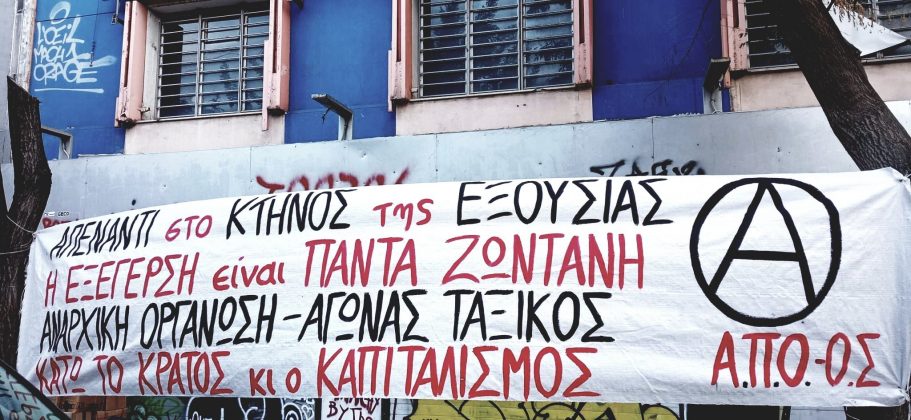 ΑΠΕΝΑΝΤΙ στο ΚΤΗΝΟΣ της ΕΞΟΥΣΙΑΣ
Η ΕΞΕΓΕΡΣΗ είναι ΠΑΝΤΑ ΖΩΝΤΑΝΗ
ΑΝΑΡΧΙΚΗ ΟΡΓΑΝΩΣΗ - ΑΓΩΝΑΣ ΤΑΞΙΚΟΣ
ΚΑΤΩ ΤΟ ΚΡΑΤΟΣ κι ο ΚΑΠΙΤΑΛΙΣΜΟΣ
Α
Α.Π.Ο.-Ο.Σ